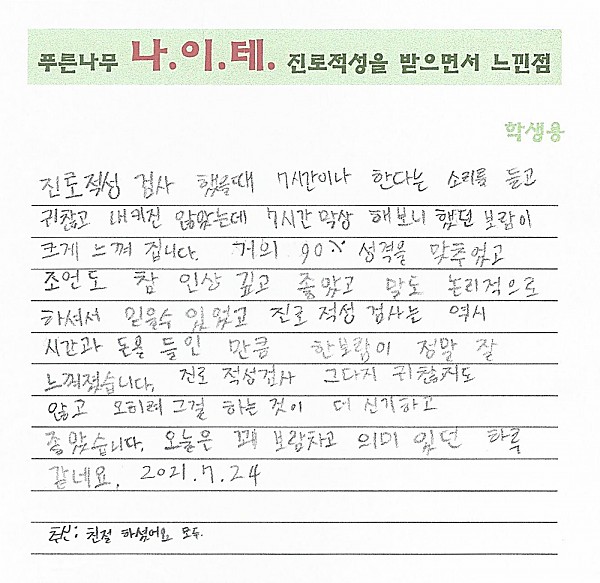 푸른나무 나.이.테. 진로적성을 받으면서 느낀점
학생용
진로적성 검사 했을때 7시간이나 한다는 소리를 듣고
귀찮고 내키진 않았는데 7시간 막상 해보니 했던 보람이
크게 느껴 집니다. 거의 90% 성격을 맞추었고
조언도 참 인상 깊고 좋았고 말도 논리적으로
하셔서 믿을수 있었고 진로 적성 검사는 역시
시간과 돈을 들인 만큼 한보람이 정말 잘
느껴졌습니다. 진로 적성검사 그다지 귀찮지도
않고 오히려 그걸 하는 것이 더 신기하고
좋았습니다. 오늘은 꽤 보람차고 의미 있던 하루
같네요, 2021.7.24
추신: 친절 하셨어요 모두.